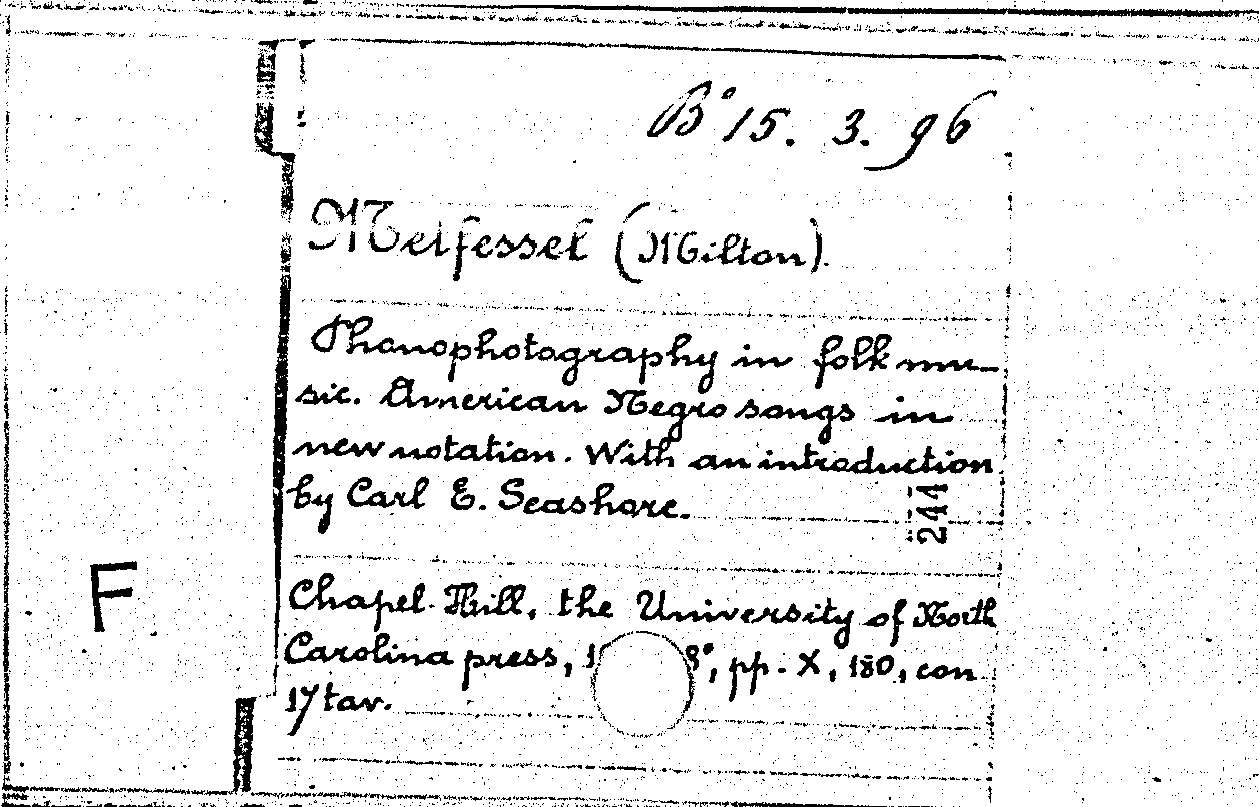 B° 15. 3. 96
Metfessel (Milton).
Phonophotography in folk mu-
sic. American Negro songs in
new notation. With an introduction
by Carl E. Seashore.
244
F
Chapel Hill, the University of North
Carolina press, 1 8°, pp. X, 180, con
17 tav.